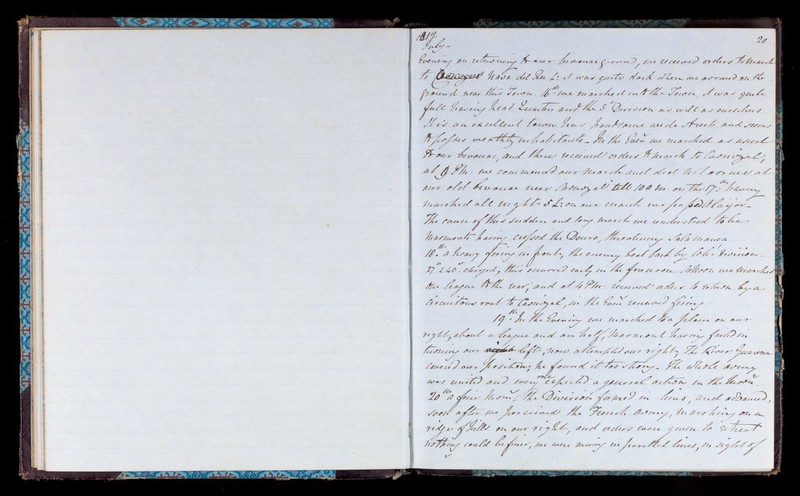 1812.
20
July—
Evening on returning to our bivouac ground, we received orders to march
to Nava del Rey L: it was quite dark when we arrived on the
ground near this Town. 16th we marched into the Town, it was quite
full having head Quarters and the 5th Division as well as ourselves
It is an excellent town has handsome wide streets and seems
to possess wealthy inhabitants — In the Eveng we marched as usual
to our bivouac, and there received orders to march to Castrejal,
at 9 PM. we commenced our march and did not arrive at
our old bivouac near till 10 AM. on the 17th having
marched all night 5 L: on our march we
The cause of this sudden and long march we understood to be
Marmonts having crossed the Douro, threatening Salamanca
18th a heavy firing in front, the enemy beat back by Coles Division.
27th & 40th charged, this occurred early in the forenoon. At Noon we marched
one league to the rear, and at 4 PM. received orders to return by a
circuitous rout to in the Eveng renewed firing
19th In the Evening we marched to a plain on our
right, about a league and an half, Marmont having failed in
turning our left, now attempted our right, The River Guarena
cover'd our position; he found it too strong. The whole army
was united and every one expected a general action in the Morng.
20th a fine Morng, the Division formed in lines, and advanced,
soon after we perceived the French army, marching on a
ridge of hills on our right, and orders were given to retreat
nothing could be finer, we were moving in parallel lines, in sight of